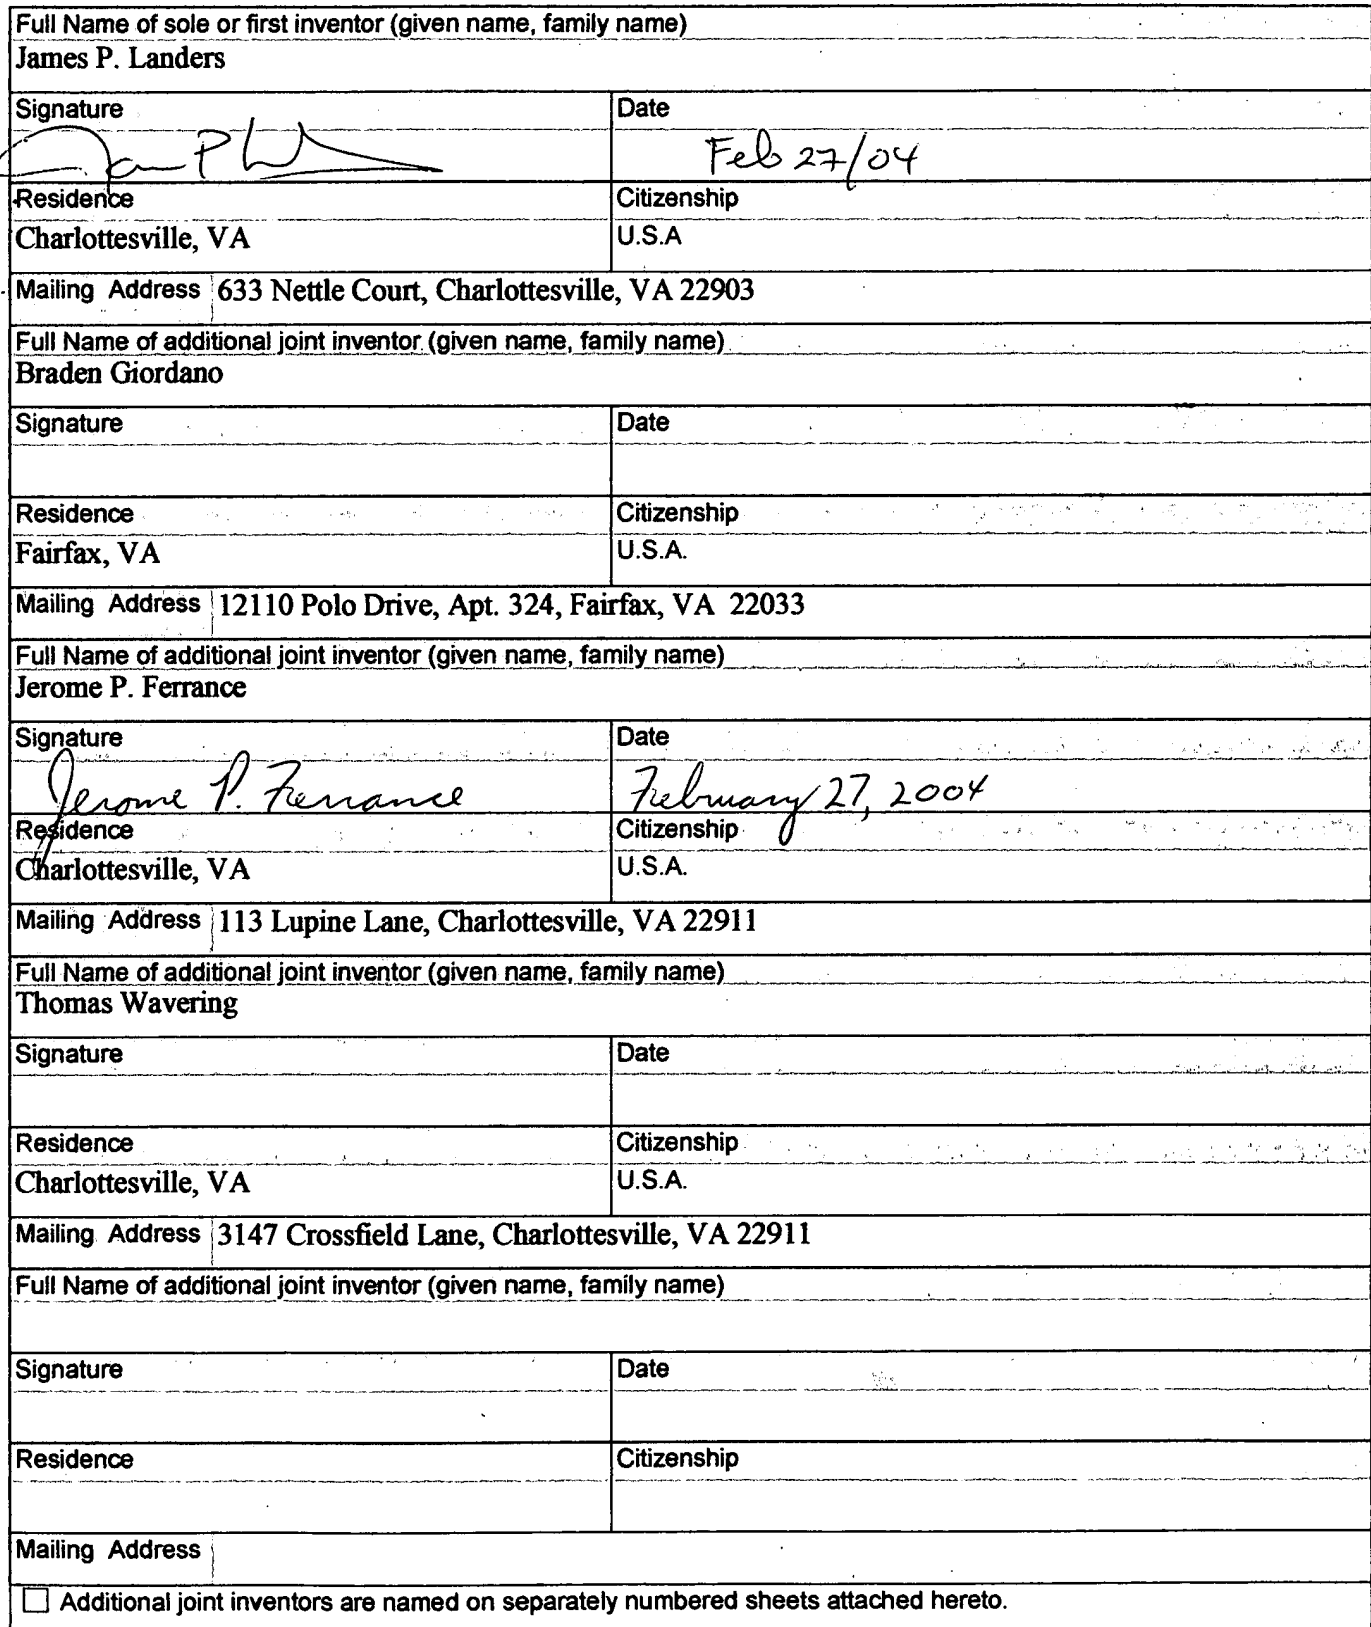 Full Name of sole or first inventor (given name, family name)
James P. Landers
Signature Date
Feb 27/04
Residence Citizenship
Charlottesville, VA U.S.A
Mailing Address 633 Nettle Court, Charlottesville, VA 22903
Full Name of additional joint inventor (given name, family name)
Braden Giordano
Signature Date
Residence Citizenship
Fairfax, VA U.S.A.
Mailing Address 12110 Polo Drive, Apt. 324, Fairfax, VA 22033
Full Name of additional joint inventor (given name, family name)
Jerome P. Ferrance
Signature Date
Jerome P. Ferrance February 27, 2004
Residence Citizenship
Charlottesville, VA U.S.A.
Mailing Address 113 Lupine Lane, Charlottesville, VA 22911
Full Name of additional joint inventor (given name, family name)
Thomas Wavering
Signature Date
Residence Citizenship
Charlottesville, VA U.S.A.
Mailing Address 3147 Crossfield Lane, Charlottesville, VA 22911
Full Name of additional joint inventor (given name, family name)
Signature Date
Residence Citizenship
Mailing Address
Additional joint inventors are named on separately numbered sheets attached hereto.